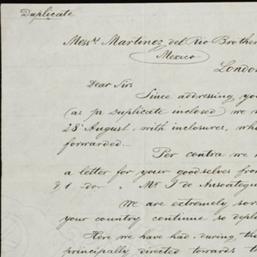 Duplicate
Messrs. Martinez del Rio Brother
Mexico
London
Dear Sir
Since addressing, yo
(as pr duplicate inclosed) we
28 August, with inclosures, wh
forwarded.
Per contra we
a letter for your goodselves from
We are extremely sor
your country continue so dep
Here we have had, during, th
principally directed towards t